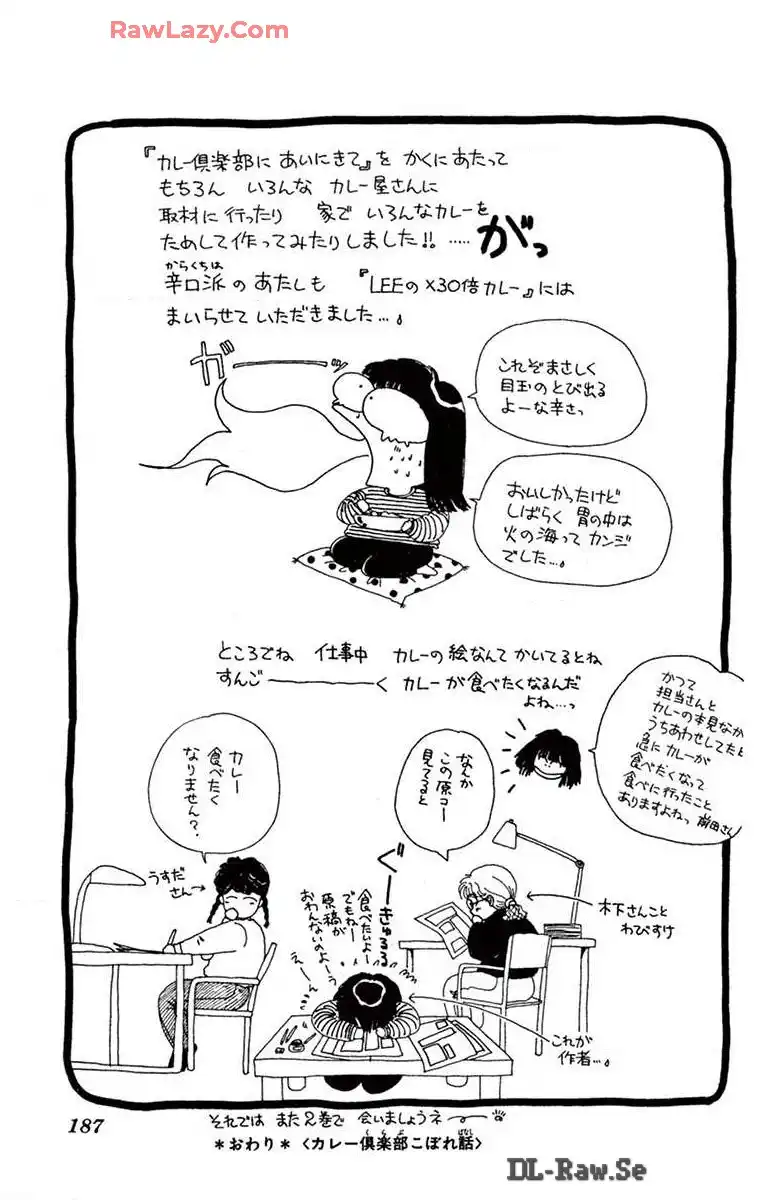 RawLazy.Com
『カレー倶楽部に あいにきて』を かくにあたって
もちろん いろんな カレー屋さんに
取材に行ったり 家で いろんなカレーを
ためして作ってみたりしました!! ……がっ
からくちは
辛口派の あたしも 『LEEの×30倍カレー』には
まいらせて いただきました…。
ガーッ
これぞまさしく
目玉のとび出る
よーな辛さっ
おいしかったけど
しばらく 胃の中は
火の海って カンジ
でした…。
ところでね 仕事中 カレーの絵なんて かいてるとね
すんご――く カレーが食べたくなるんだ
よね…っ
かつて
担当さんと
カレーの本見なか
うちあわせしてたと
急にカレーが
食べたくなって
食べに行ったこと
ありますよねっ 前田さん
なんか
この原コー
見てると
カレー
食べたく
なりません?
うすだ
さん→
ぐーきゅるる
食べたいよー
でもねー
原稿が
おわんないのよーぅ
えーん
木下さんこと
わびすけ
これが
作者…。
それでは また2巻で 会いましょうネ
187
*おわり*〈カレー倶楽部こぼれ話〉
くらぶ
ばなし
DL-Raw.Se